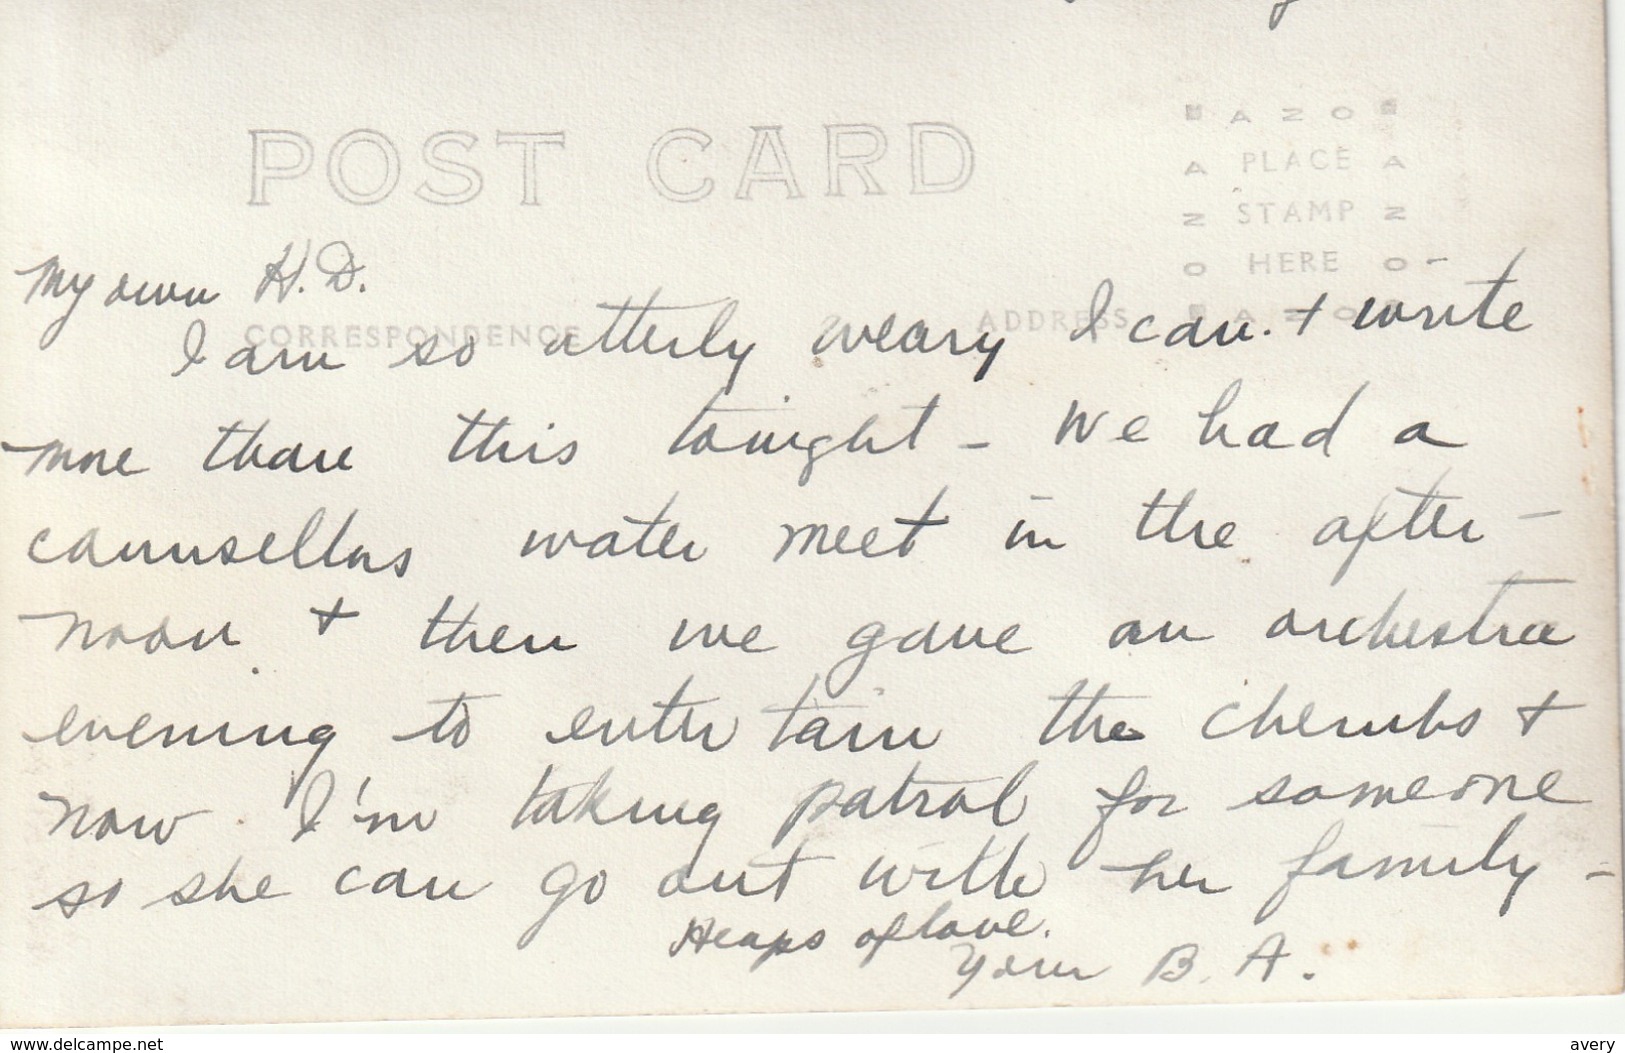 POST CARD
AZO
A PLACE A
N STAMP N
O HERE O
AZO
CORRESPONDENCE
ADDRESS
My own H.D.
I am so utterly weary I can't write
more than this tonight - We had a
counsellors water meet in the after-
noon + then we gave an orchestra
evening to entertain the cherubs +
now I'm taking patrol for someone
so she can go out with her family -
Heaps of love.
Your B. A.
www.delcampe.net
avery